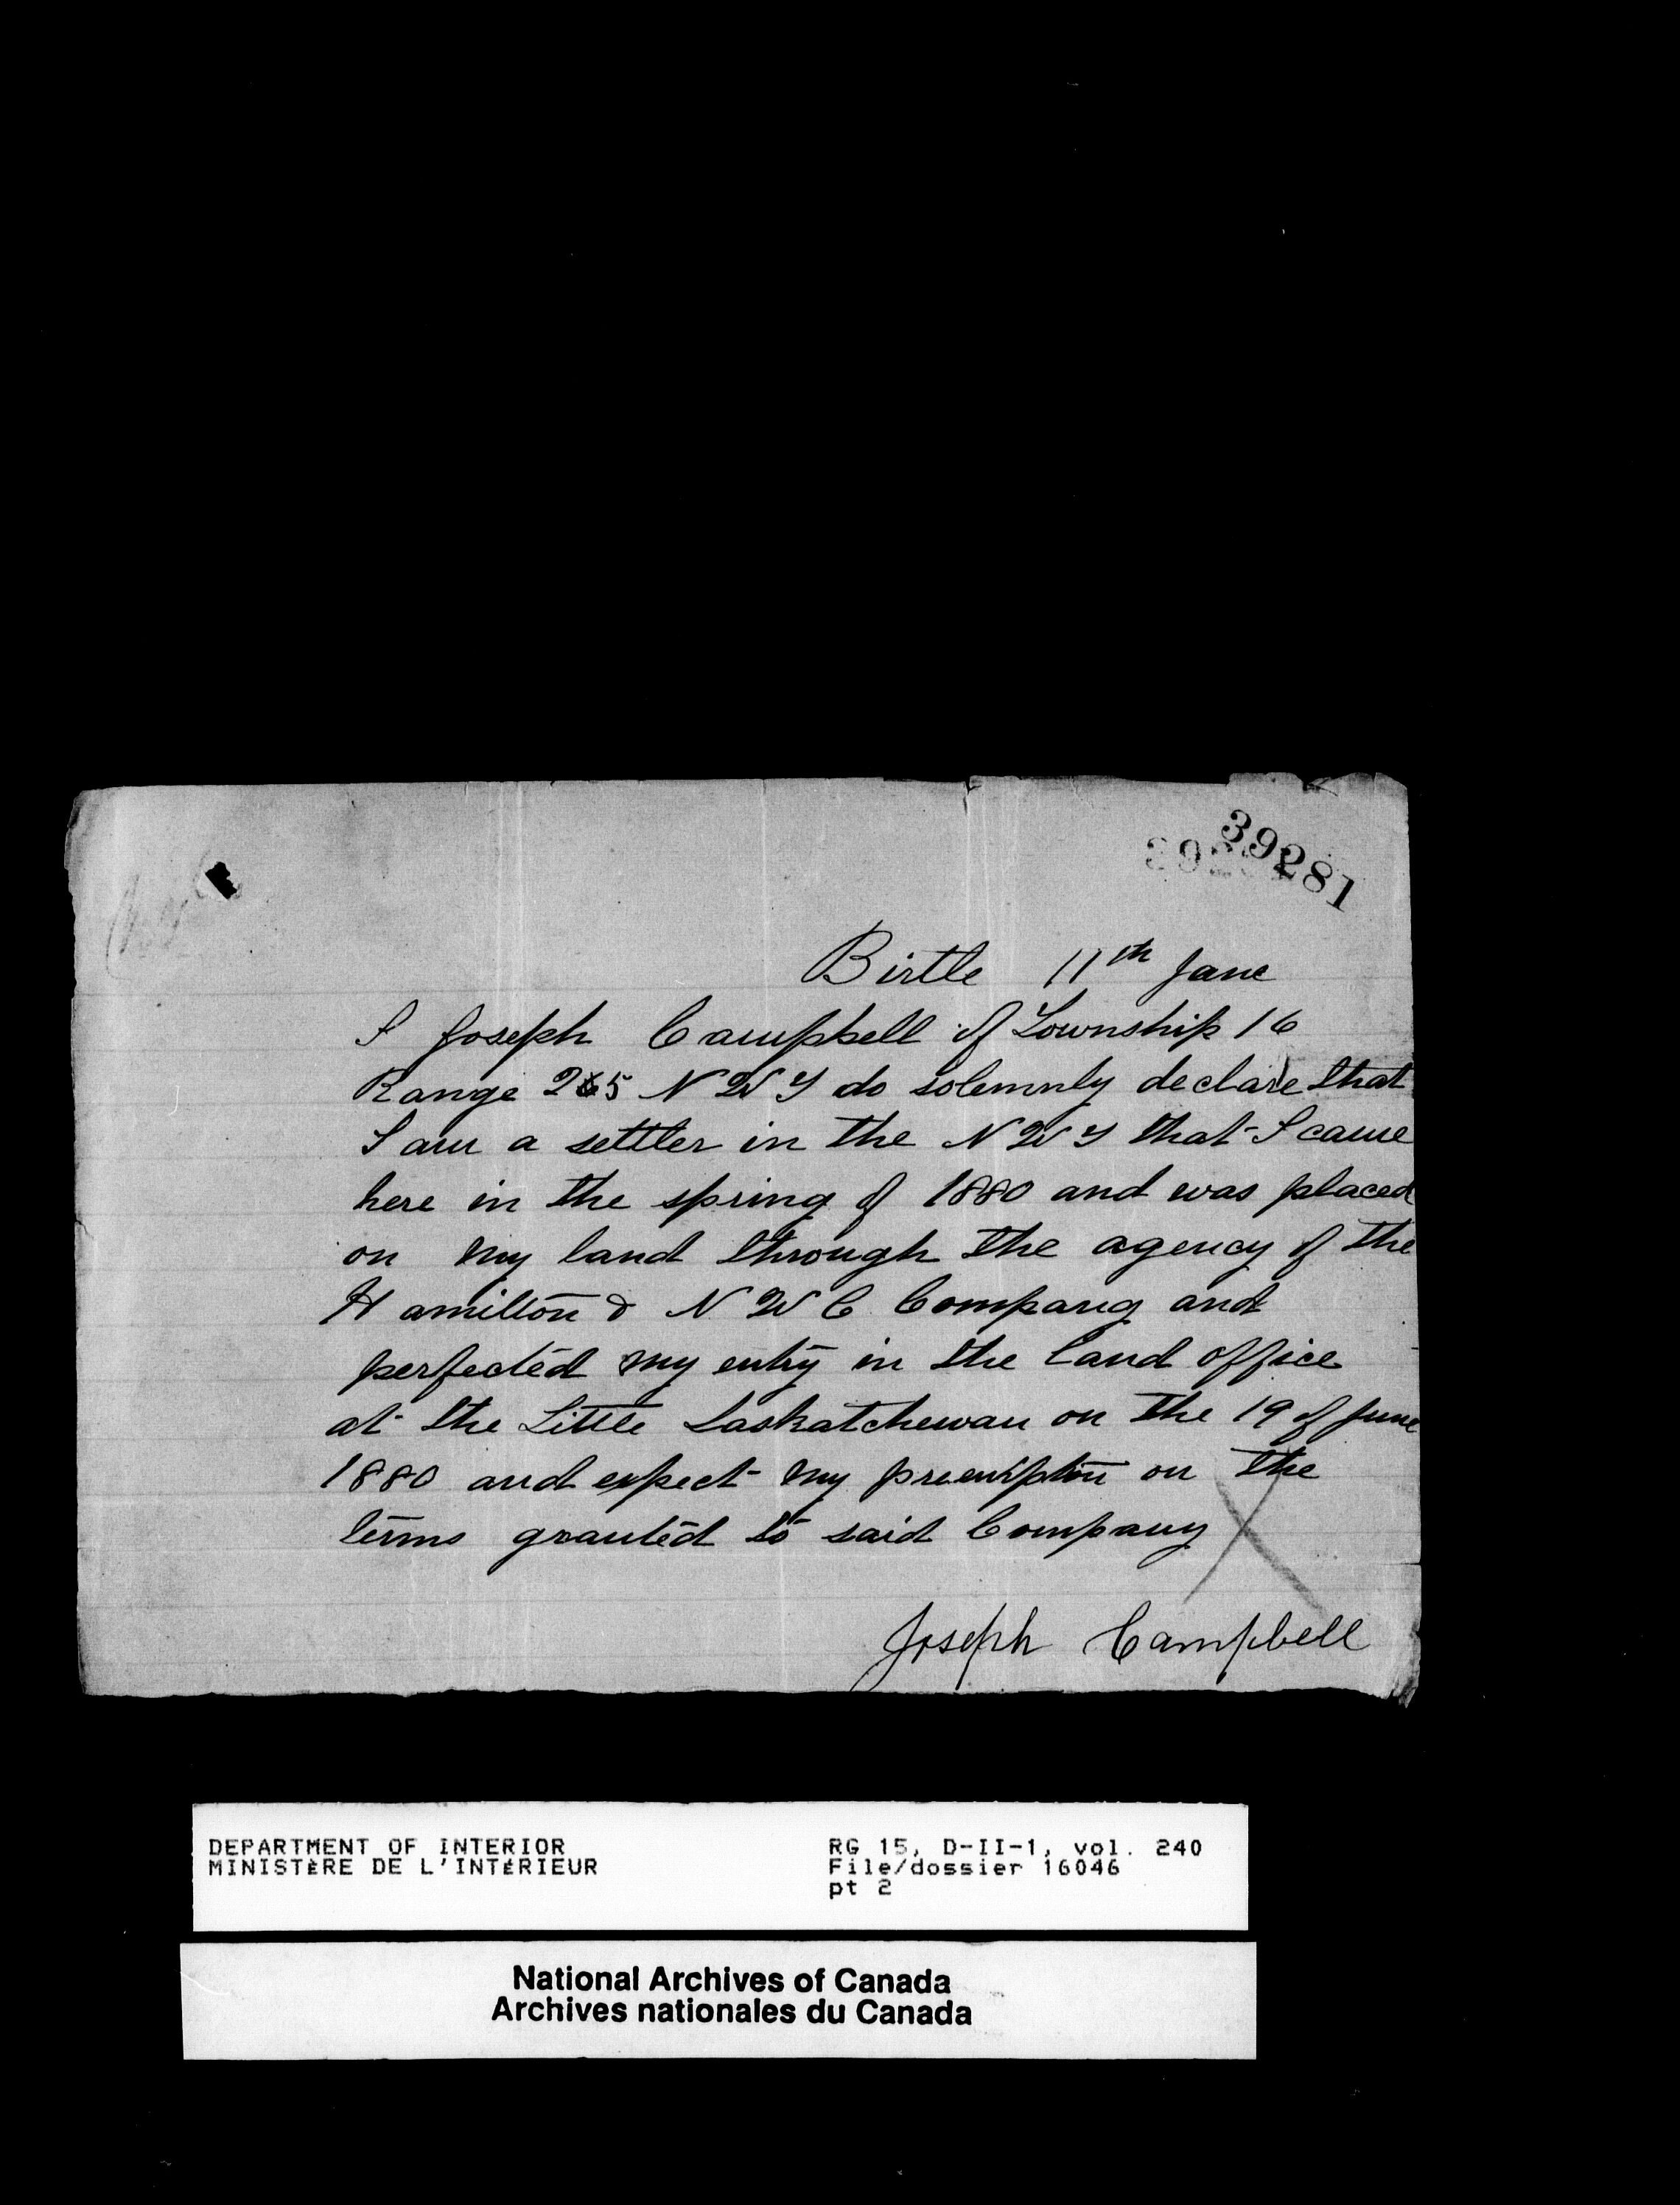 39281
Birtle 11th Jane
I Joseph Campbell of Township 16
Range 265 N W T do solemnly declare that
I am a settler in the N W T that I came
here in the spring of 1880 and was placed
on my land through the agency of the
Hamilton & N W C Company and
perfected my entry in the land office
at the Little Saskatchewan on the 19 of June
1880 and expect my preemption on the
terms granted to said Company
Joseph Campbell
DEPARTMENT OF INTERIOR RG 15, D-II-1, vol. 240
MINISTÈRE DE L'INTÉRIEUR File/dossier 16046
pt 2
National Archives of Canada
Archives nationales du Canada